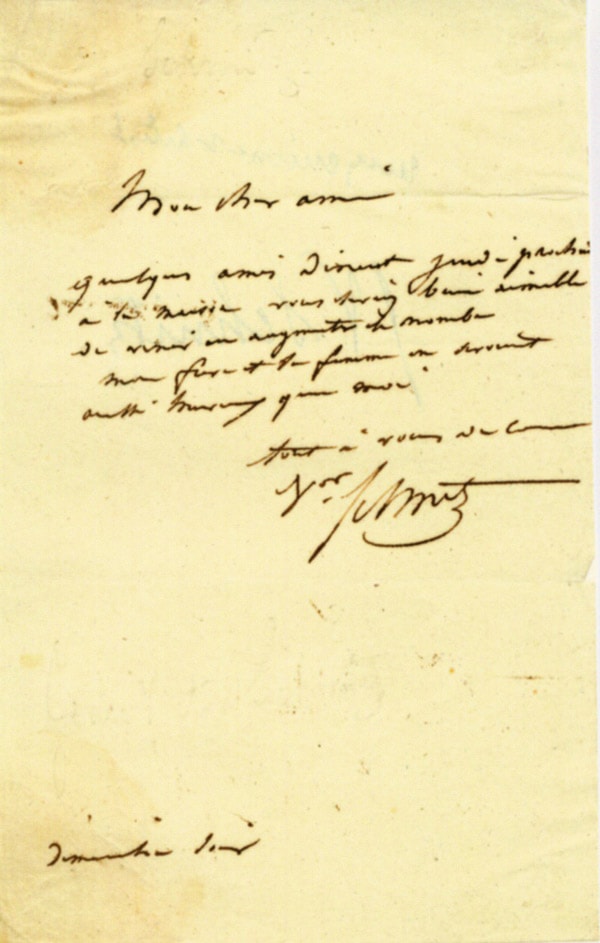 Mon cher ami
quelques amis dinent jeudi prochain
à la maison vous seriez bien aimable
de venir en augmenter le nombre
mon frere et sa femme en seroient
aussi heureux que moi
tout à vous de coeur
Vor Schnetz
dimanche soir